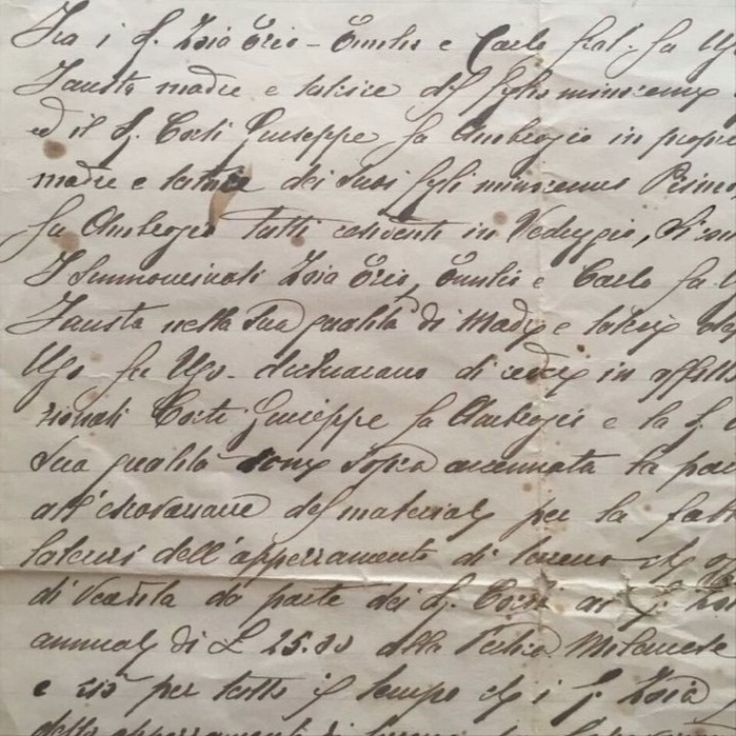 Fra i S. Zoia Ezio - Emilio e Carlo frat. fu Ugo
Fausta madre e tutrice del figlio minorenne
ed il S. Corti Giuseppe fu Ambrogio in propri
madre e tutrice dei suoi figli minorenni Primo,
fu Ambrogio tutti residenti in Vedeggio, si con
I summenzionati Zoia Ezio, Emilio e Carlo fu U
Fausta nella sua qualità di Madre e tutrice
Ugo fu Ugo - dichiarano di cedere in affitto
zionati Corti Giuseppe fu Ambrogio e la S.
sua qualità come sopra accennata la
all'escavazione del materiale per la fabb
laterizi dell'appezzamento di terreno che
di vendita da parte dei S. Corti ai S. Zoia
annuali di £ 25.30 alla Pertica Milanese
e ciò per tutto il tempo che i S. Zoia
dello appezzamento di